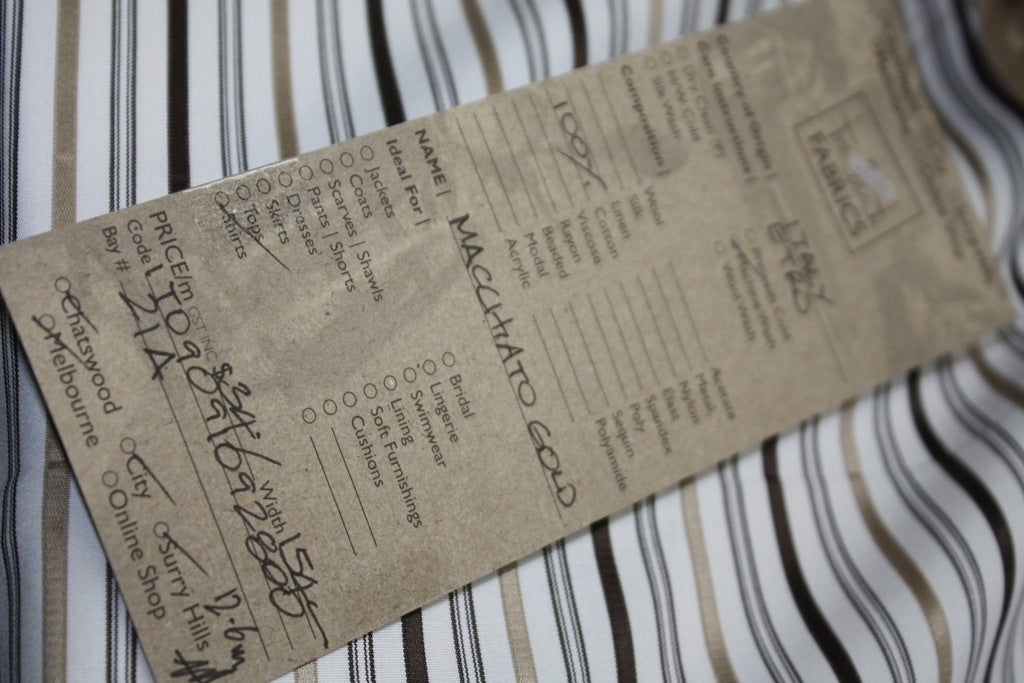 FABRICS
Country of Origin | ITALY
Care Instructions |
Dry Clean (P)
H/W Cold
Silk Wash
Machine Wash
Wool Wash
Composition |
Wool
Silk
Linen
100% Cotton
Viscose
Rayon
Beaded
Modal
Acrylic
Acetate
Metal
Nylon
Elast
Spandex
Poly
Sequin
Polyamide
NAME | MACCHIATO GOLD
Ideal For |
Jackets
Coats
Scarves | Shawls
Pants | Shorts
Dresses
Skirts
Tops
Shirts
Bridal
Lingerie
Swimwear
Lining
Soft Furnishings
Cushions
PRICE/m GST INC Width
Code
Bay # 21A
Chatswood City Surry Hills 12.6m
Melbourne Online Shop